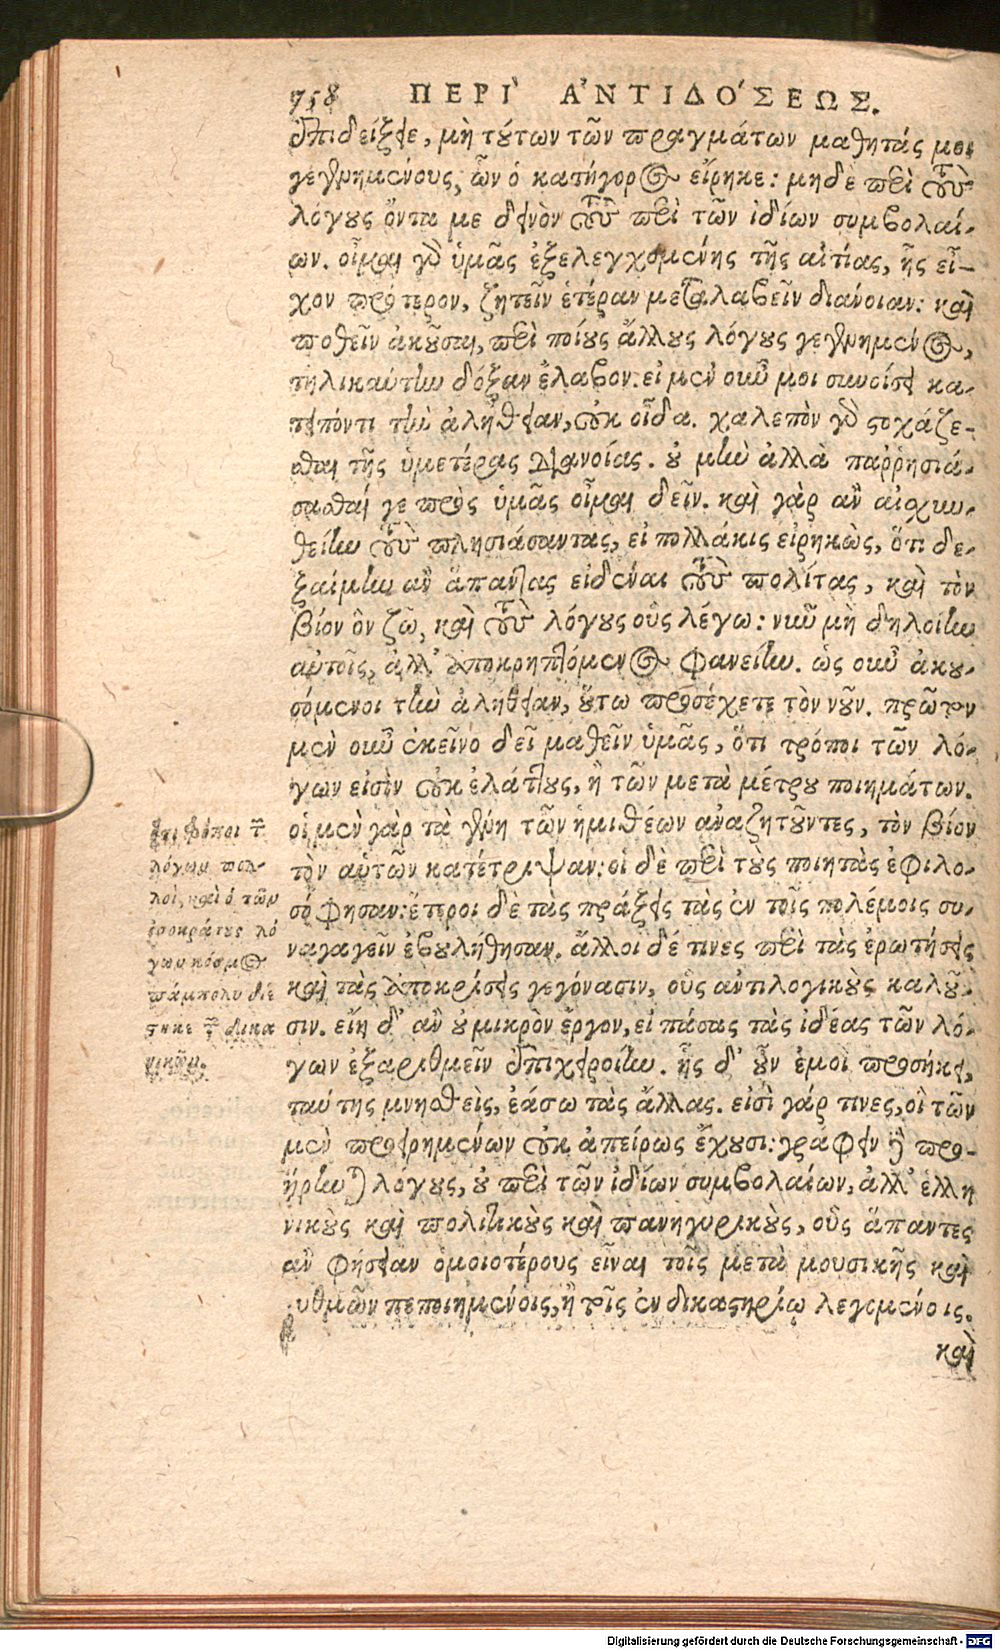 758 ΠΕΡΙ` ἈΝΤΙΔΌΣΕΩΣ.
ἐπιδείξειε, μὴ τούτων τῶν πραγμάτων μαθητάς μοι
γεγενημένους, ὧν ὁ κατήγορος εἴρηκε: μηδὲ περὶ τοὺς
λόγους ὄντα με δεινὸν τοὺς περὶ τῶν ἰδίων συμβολαί-
ων. οἶμαι γὰρ ὑμᾶς ἐξελεγχομένης τῆς αἰτίας, ἧς εἶ-
χον πρότερον, ζητεῖν ἑτέραν μεταλαβεῖν διάνοιαν: καὶ
ποθεῖν ἀκοῦσαι, περὶ ποίους ἄλλους λόγους γεγενημένος,
τηλικαύτην δόξαν ἔλαβον. εἰ μὲν οὖν μοι συνοίσει κα-
τειπόντι τὴν ἀλήθειαν, οὐκ οἶδα. χαλεπὸν γὰρ στοχάζε-
σθαι τῆς ὑμετέρας διανοίας. οὐ μὴν ἀλλὰ παῤῥησιά-
σασθαί γε πρὸς ὑμᾶς οἶμαι δεῖν. καὶ γὰρ ἂν αἰσχυν-
θείην τοὺς πλησιάσαντας, εἰ πολλάκις εἰρηκὼς, ὅτι δε-
ξαίμην ἂν ἅπαντας εἰδέναι τοὺς πολίτας, καὶ τὸν
βίον ὃν ζῶ, καὶ τοὺς λόγους οὓς λέγω: νῦν μὴ δηλοίην
αὐτοῖς, ἀλλ' ἀποκρηπτόμενος φανείην. ὡς οὖν ἀκου-
σόμενοι τὴν ἀλήθειαν, οὕτω προσέχετε τὸν νοῦν. πρῶτον
μὲν οὖν ἐκεῖνο δεῖ μαθεῖν ὑμᾶς, ὅτι τρόποι τῶν λό-
γων εἰσὶν οὐκ ἐλάττους, ἢ τῶν μετὰ μέτρου ποιημάτων.
οἱ μὲν γὰρ τὰ γένη τῶν ἡμιθέων ἀναζητοῦντες, τὸν βίον
τὸν αὑτῶν κατέτριψαν: οἱ δὲ περὶ τοὺς ποιητὰς ἐφιλο-
σόφησαν: ἕτεροι δὲ τὰς πράξεις τὰς ἐν τοῖς πολέμοις συ-
ναγαγεῖν ἐβουλήθησαν. ἄλλοι δέ τινες περὶ τὰς ἐρωτήσεις
καὶ τὰς ἀποκρίσεις γεγόνασιν, οὓς ἀντιλογικοὺς καλοῦ-
σιν. εἴη δ' ἂν οὐ μικρὸν ἔργον, εἰ πάσας τὰς ἰδέας τῶν λό-
γων ἐξαριθμεῖν ἐπιχειροίην. ἧς δ' οὖν ἐμοὶ προσήκει,
ταύτης μνησθεὶς, ἐάσω τὰς ἄλλας. εἰσὶ γάρ τινες, οἳ τῶν
μὲν προειρημένων οὐκ ἀπείρως ἔχουσι: γράφειν δὲ προ-
ῄρηνται λόγους, οὐ περὶ τῶν ἰδίων συμβολαίων, ἀλλ' ἑλλη
νικοὺς καὶ πολιτικοὺς καὶ πανηγυρικοὺς, οὓς ἅπαντες
ἂν φήσειαν ὁμοιοτέρους εἶναι τοῖς μετὰ μουσικῆς καὶ
ῥυθμῶν πεποιημένοις, ἢ τοῖς ἐν δικαστηρίῳ λεγομένοις.
καὶ
ὅτι τρόποι τῶν
λόγων πολ-
λοὶ, καὶ ὁ τῶν
ἰσοκράτους λό
γων κόσμος
πάμπολυ διέ
στηκε τῶν δικα
νικῶν.